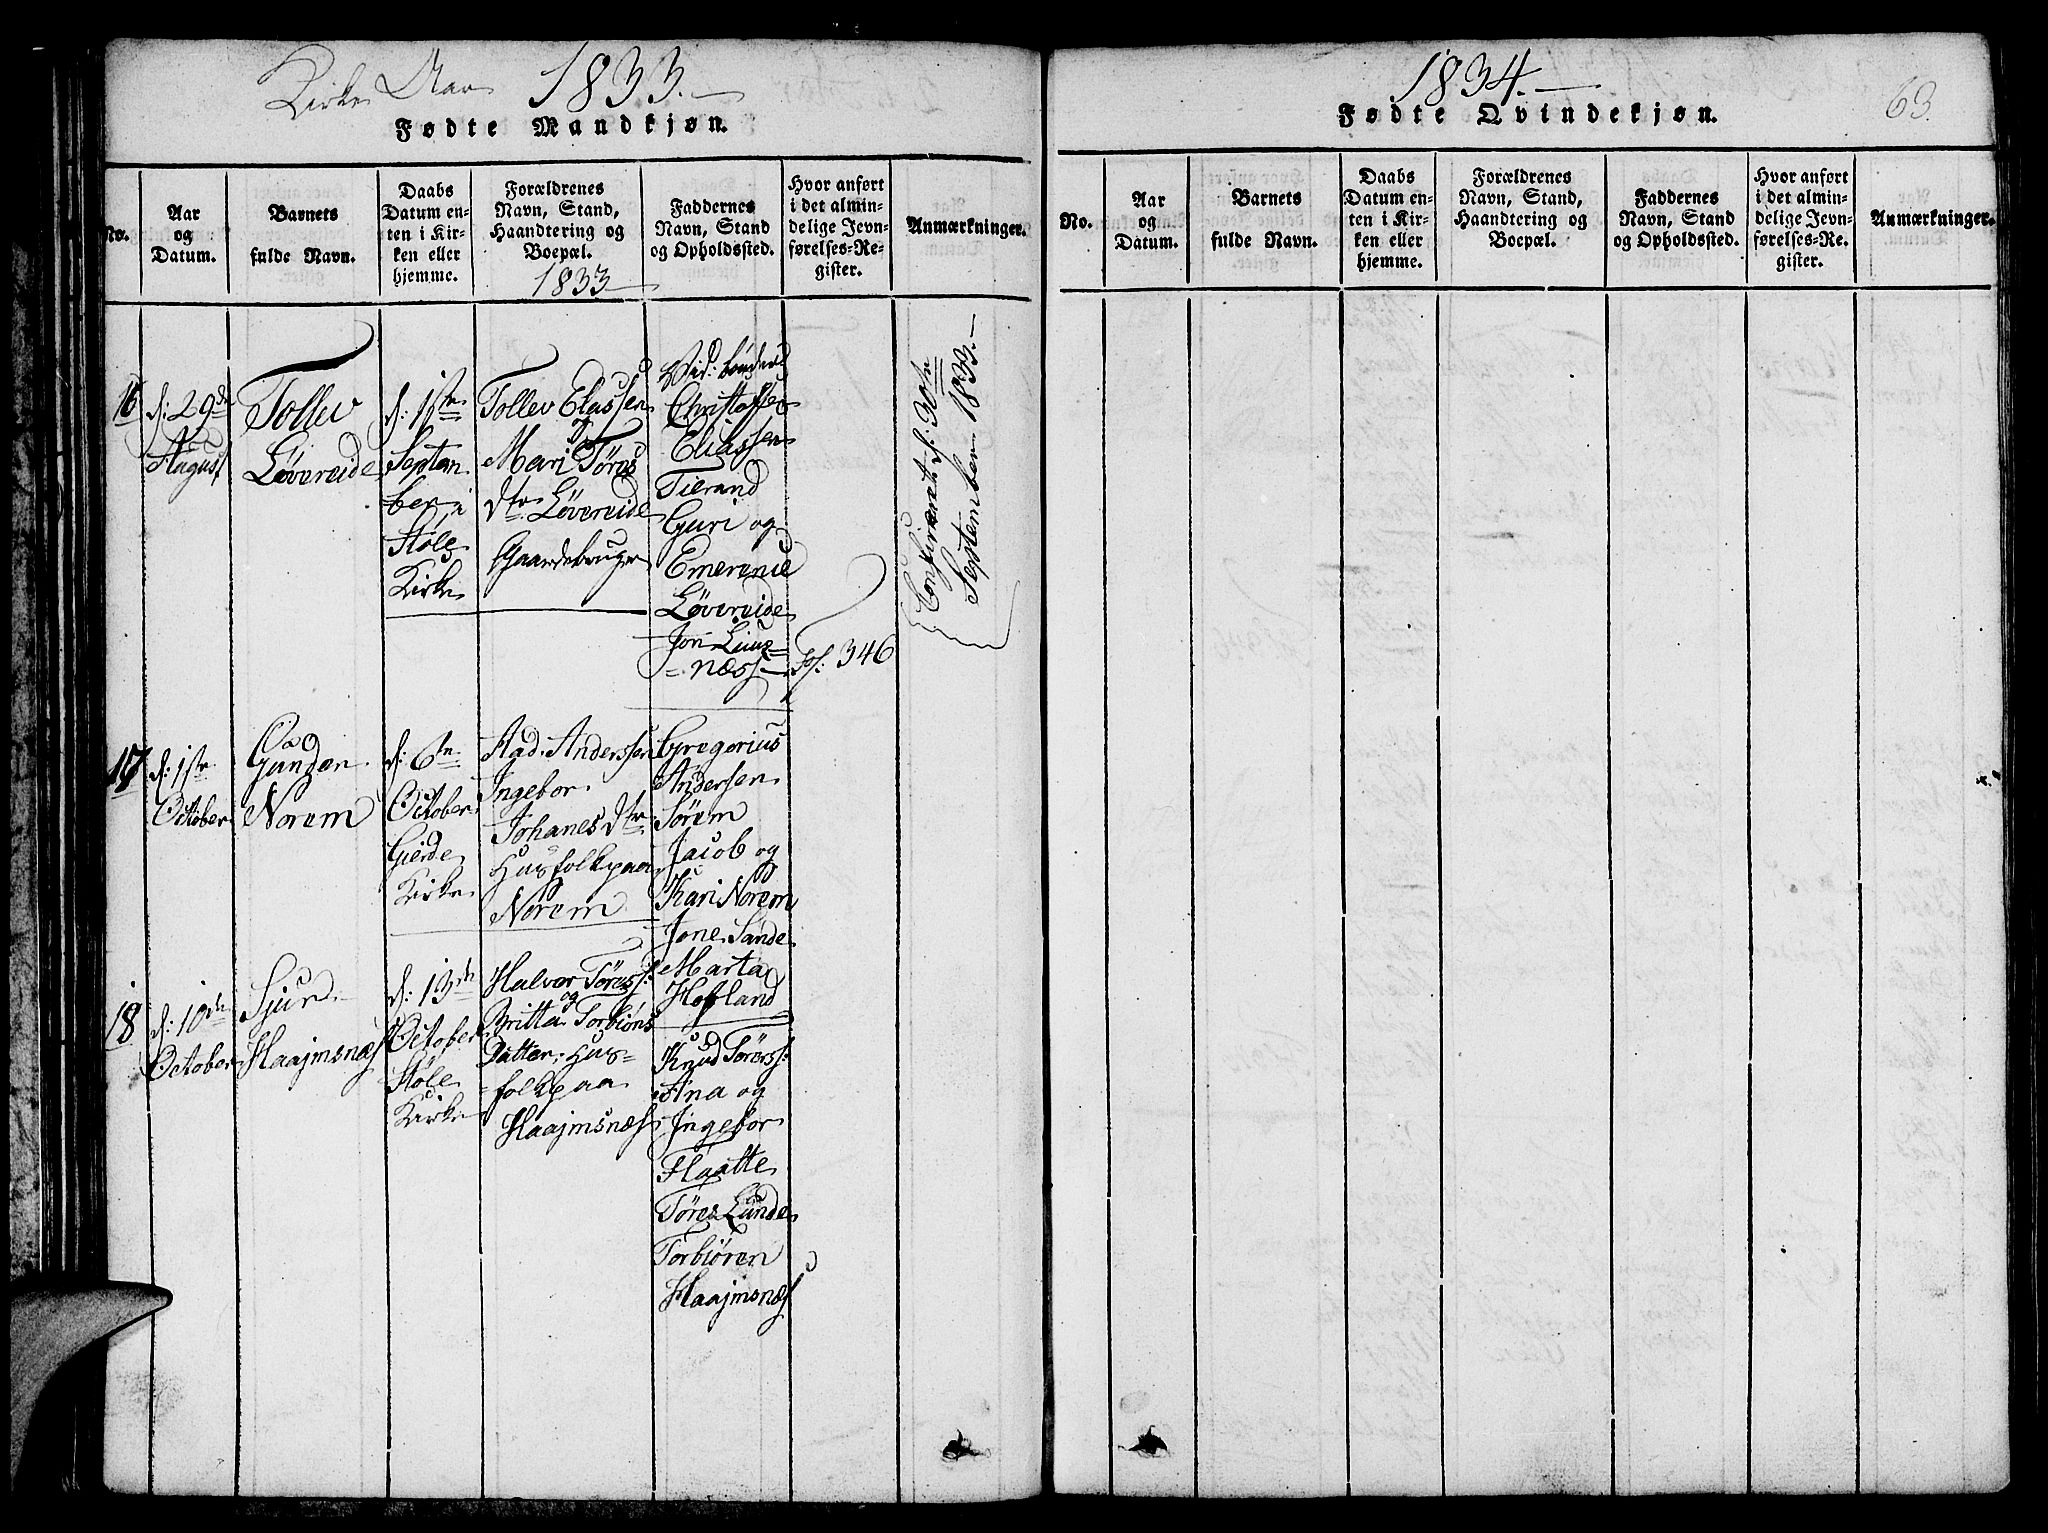 Kirke Aar 1833.
Fødte Mandkjøn.
No.
Aar
og
Datum.
Barnets
fulde Navn.
Daabs
Datum en-
ten i Kir-
ken eller
hjemme.
Forældrenes
Navn, Stand,
Haandtering og
Boepæl.
1833
Faddernes
Navn, Stand
og Opholdssted.
Hvor anført
i det almin-
delige Jevn-
førelses-Re-
gister.
Anmærkninger.
16
d: 29de
August
Tollev
Løvereide
d: 1ste
Septem
ber i
Høle
Kirke
Tollev Eliassen
og
Mari Tøres
dtr Løvereide
Gaardebruger
Christoffer
Eliassen
Tierand
Guri og
Emerence
Løvereide
Jon Liius=
=næss
Fol: 346
Confirmeret d: 30te
September 1833.
17
d: 1ste
October
Gunder
Norem
d: 6te
October
Gierde
Kirke
Aad Anderssen
Ingebor
Johanes dtr
Husfolk paa
Norem
Gregorius
Andersen
Sørem
Jacob og
Kari Norem
Jone Sande
Marta
Hofland
18
d: 10de
October
Sjur
Haajmsnæs
d: 13de
October
Høle
Kirke
Halvor Tøress:
og
Britta Torbiøns
Datter, Hus=
=folk paa
Haajmsnæs
Knud Tørerss:
Ana og
Ingebor
Flaatte
Tøres Lunde
Torbiøren
Haajmsnæs
1834.
63.
Fødte Qvindekjøn.
No.
Aar
og
Datum.
Barnets
fulde Navn.
Daabs
Datum en-
ten i Kir-
ken eller
hjemme.
Forældrenes
Navn, Stand,
Haandtering og
Boepæl.
Faddernes
Navn, Stand
og Opholdssted.
Hvor anført
i det almin-
delige Jevn-
førelses-Re-
gister.
Anmærkninger.